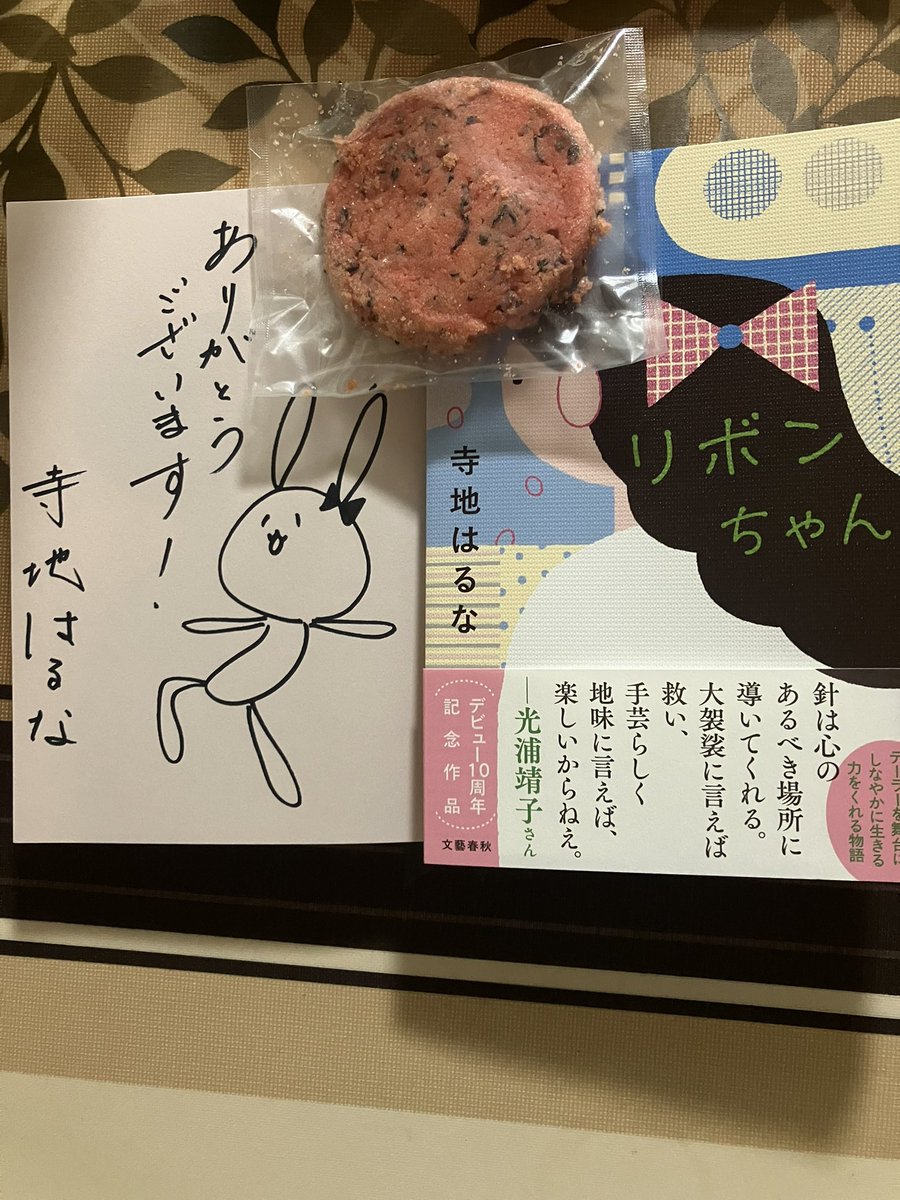 ありがとう
ございます!
寺地はるな
リボン
ちゃん
寺地はるな
針は心の
あるべき場所に
導いてくれる。
大袈裟に言えば
救い、
手芸らしく
地味に言えば、
楽しいからねえ。
―光浦靖子さん
デビュー10周年
記念作品
文藝春秋
テーラーを舞台に
しなやかに生きる
力をくれる物語